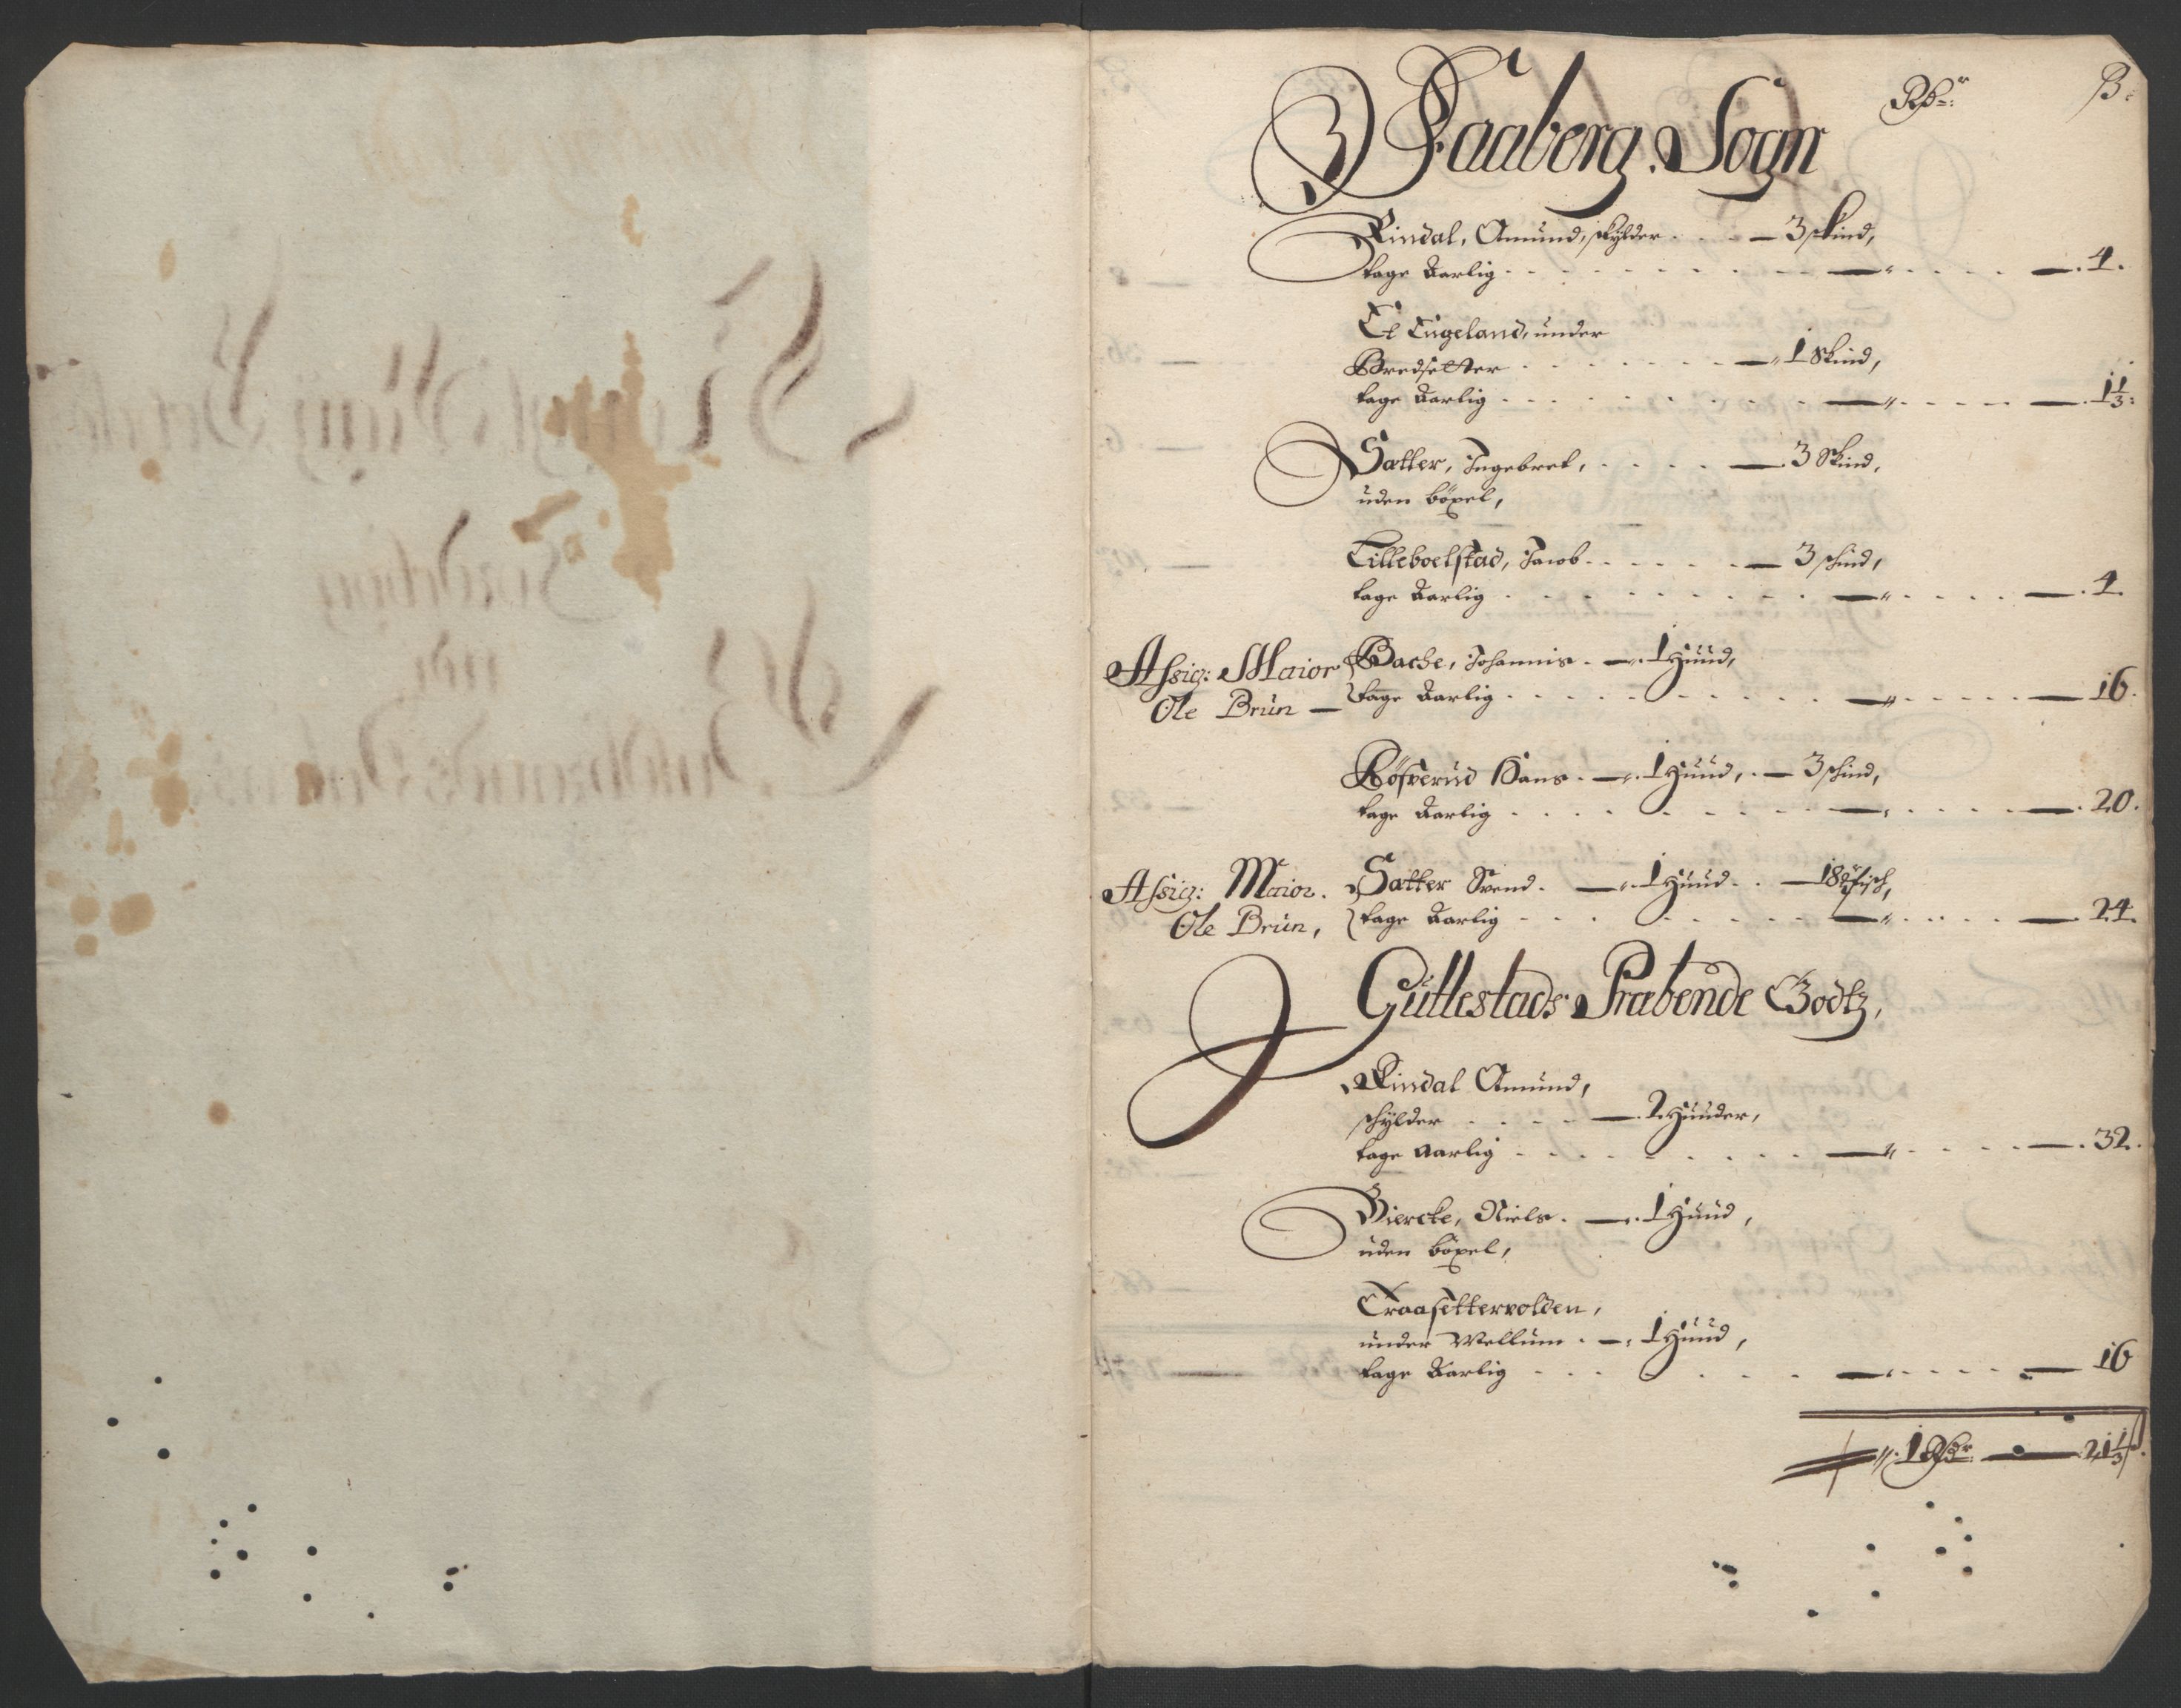 Rdr: ß:
Faaberg Sogn
Rindal, Amund, skylder - - - 3 skind,
tage Aarlig - - - 4.
Et Engeland, under
Bredsetter - - - 1 Skind,
tage Aarlig - - - 1 1/3:
Satter, Ingebret, - - - 3 Skind,
uden böxel,
Lilleboelstad, Jacob - - - 3 schind,
tage Aarlig - - - 4.
Assig: Maior Bache, Johannis - 1 Huud,
Ole Brun — tage Aarlig - - - 16.
Röfverud Hans - 1 Huud, - 3 schind,
tage Aarlig - - - 20.
Assig: Maior. Satter Svend - 1 Huud - - 18
Ole Brun, tage Aarlig - - - 24.
Gullestads Præbende Godtz,
Rindal Amund,
schylder - - - 2 Huuder,
tage aarlig - - - 32.
Biercke, Niels - 1 Huud,
uden böxel,
Traasettervolden,
under Wellum - 1 Huud,
tage Aarlig - - - 16
1 Rdr: — 21 1/3 ß.